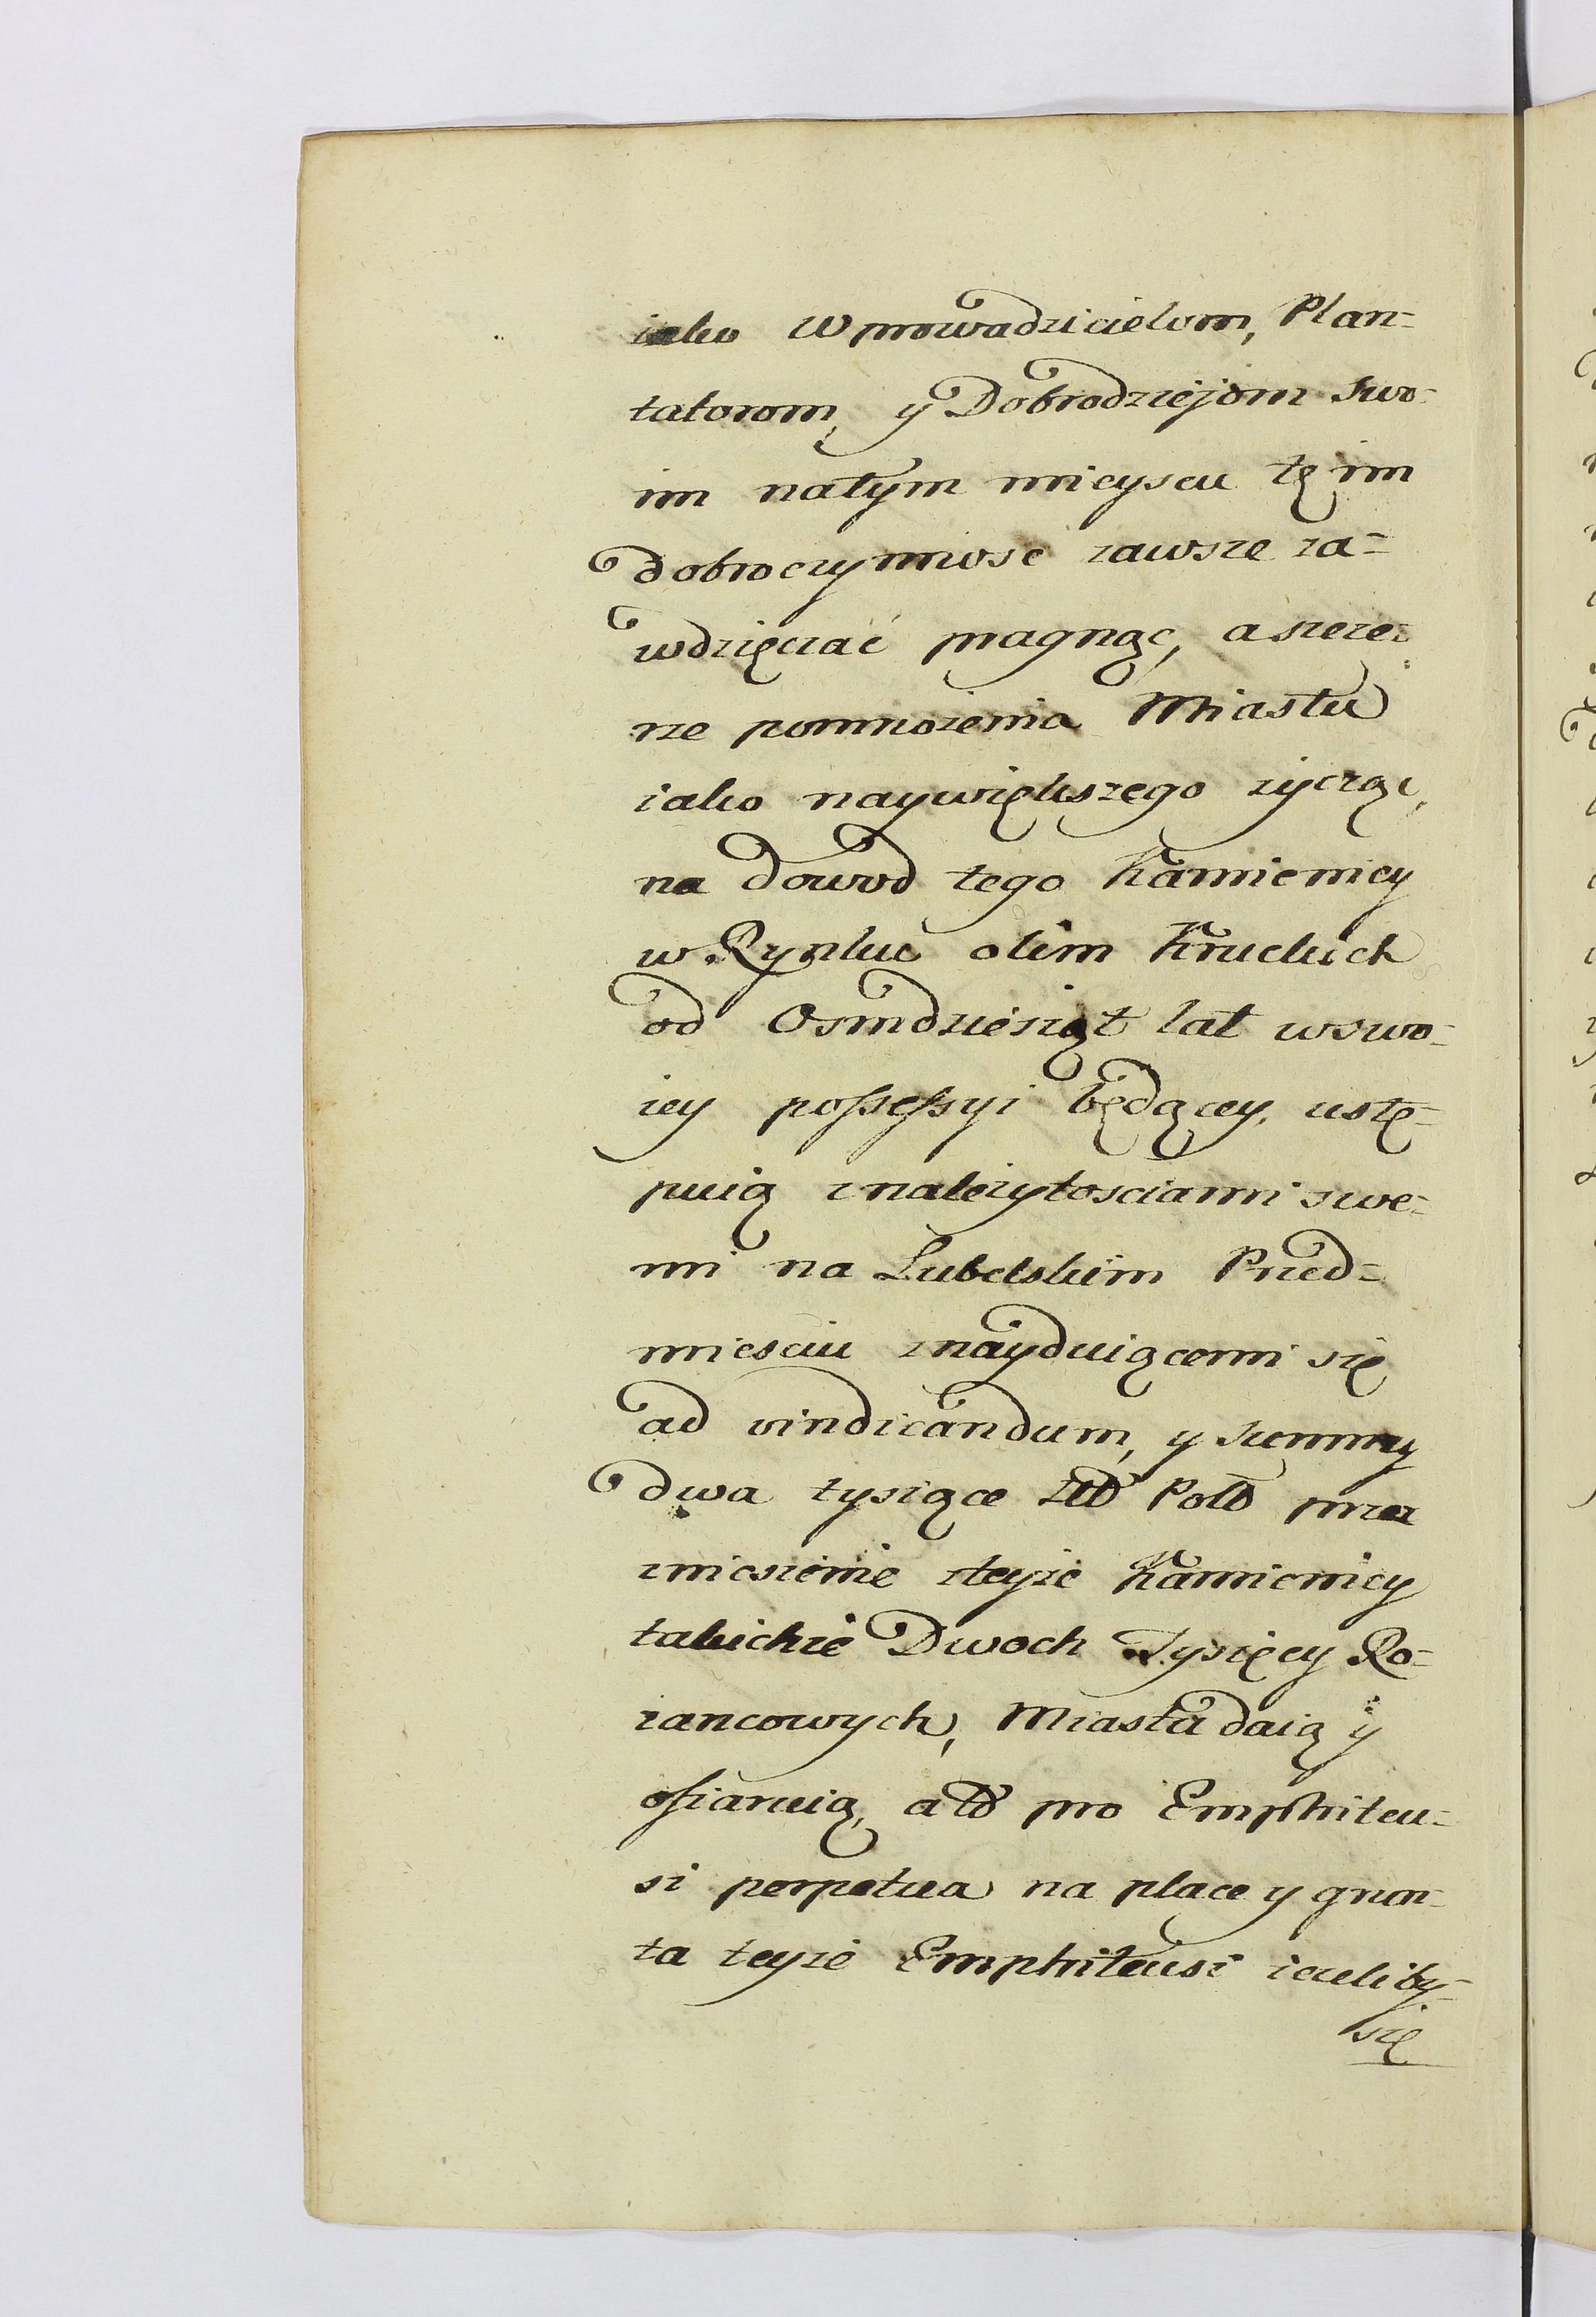 iako Wprowadzicielom, Plan=
tatorom, y Dobrodziejom swo=
im natym mieyscu tę im
dobroczynnosc zawsze za=
wdzięczać pragnąc, a szcze=
rze pomnożenia Miastu
iako naywiększego życząc,
na dowod tego Kamienicy
w Rynku olim Kruckich
od Osmdziesiąt lat wswo=
iey possessyi będącey, ustę=
puią znależytosciami swe=
mi na Lubelskim Przed=
miesciu znayduiącemi się
ad vindicandum, y summy
dwa tysiące złł Poll przez
zniesienie zteyże Kamienicy
takichże Dwoch Tysięcy Ro=
zancowych, Miastu daią y
ofiaruią, a łł pro Emphiteu=
si perpetua na place y grun=
ta teyże Emphiteusi ieżeliby=
się